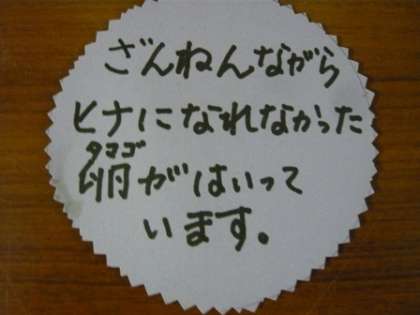 ざんねんながら
ヒナになれなかった
タマゴ
卵がはいって
います。